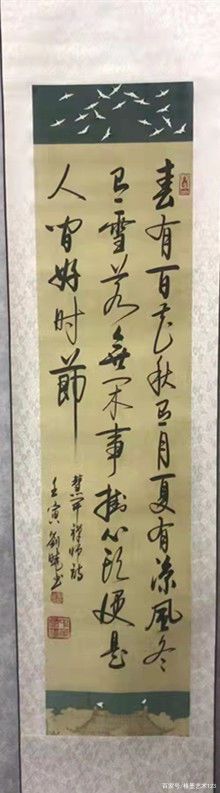 春有百花秋有月夏有凉風冬
有雪若無闲事掛心头便是
人间好时節
慧开禅师诗
壬寅
百家号/格墨艺术123